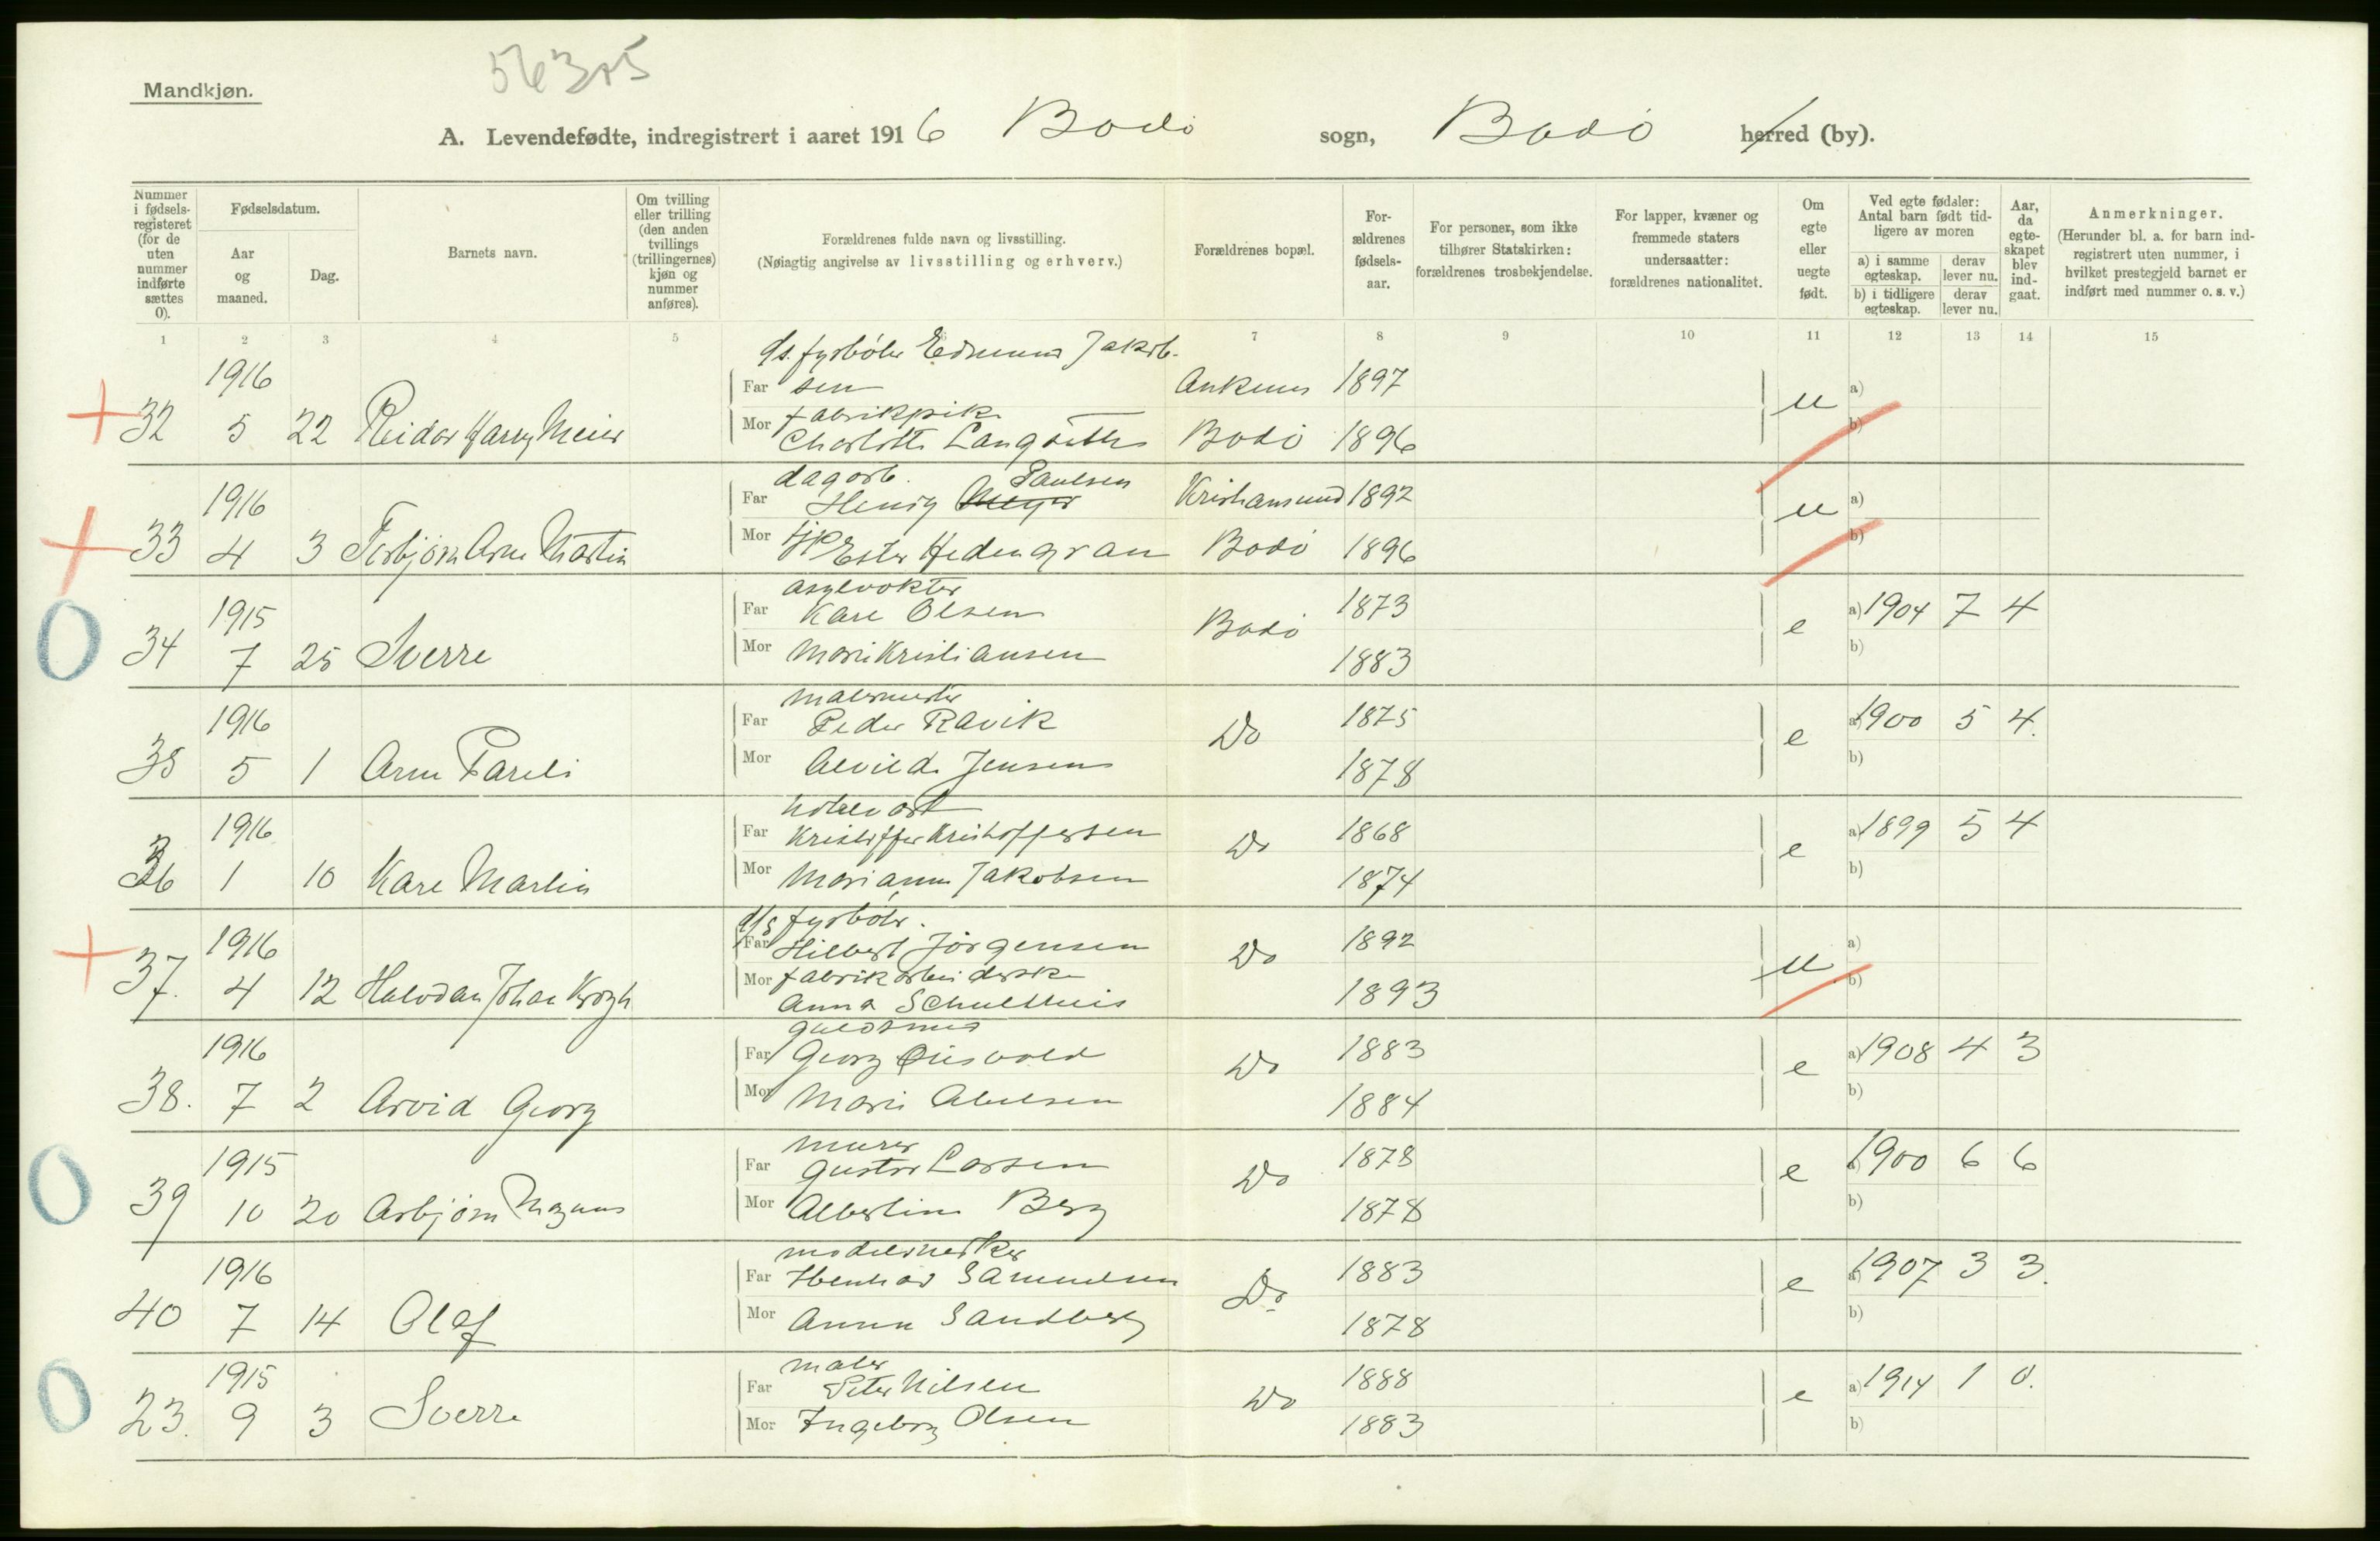 56325
Mandkjøn.
A. Levendefødte, indregistrert i aaret 1916 Bodö sogn, Bodö herred (by).
Nummer i fødselsregisteret (for de uten nummer indførte sættes 0).
Fødselsdatum.
Aar og maaned.
Dag.
Barnets navn.
Om tvilling eller trilling (den anden tvillings (trillingernes) kjøn og nummer anføres).
Forældrenes fulde navn og livsstilling.
(Nøiagtig angivelse av livsstilling og erhverv.)
Forældrenes bopæl.
Forældrenes fødselsaar.
For personer, som ikke tilhører Statskirken: forældrenes trosbekjendelse.
For lapper, kvæner og fremmede staters undersaatter: forældrenes nationalitet.
Om egte eller uegte født.
Ved egte fødsler: Antal barn født tidligere av moren
a) i samme egteskap.
derav lever nu.
b) i tidligere egteskap.
derav lever nu.
Aar, da egteskapet blev indgaat.
Anmerkninger.
(Herunder bl. a. for barn indregistrert uten nummer, i hvilket prestegjeld barnet er indført med nummer o. s. v.)
1 2 3 4 5 7 8 9 10 11 12 13 14 15
d/s. fyrböter Edmund Jakob-
1916 Far sen Ankenes 1897 a)
+ 32 5 22 Reidar Harry Meier Mor fabrikpike u b)
Charlotte Langsæther Bodö 1896
dagarb. Paulsen
1916 Far Henry Meyer Kristiansund 1892 u a)
+ 33 4 3 Torbjörn Arne Martin Mor Ester Hedengran Bodö 1896 b)
asylvokter
1915 Far Kare Olsen Bodö 1873 e a) 1904 7 4
0 34 7 25 Sverre Mor Marie Kristiansen 1883 b)
malermester
1916 Far Peder Ravik Do 1875 e a) 1900 5 4.
35 5 1 Arne Pareli Mor Alvilde Jensen 1878 b)
hotelvært
1916 Far Kristoffer Kristoffersen Do 1868 e a) 1899 5 4
36 1 10 Kare Martin Mor Marianne Jakobsen 1874 b)
d/s fyrböter.
1916 Far Hilbert Jörgensen Do 1892 u a)
+ 37. 4 12 Halvdan Johan Krogh Mor fabrikarbeiderske b)
Anna Schultheis 1893
guldsmed
1916 Far Georg Do 1883 e a) 1908 4 3
38. 7 2 Arvid Georg Mor Marie Abelsen 1884 b)
murer
1915 Far Gustav Larsen Do 1878 e a) 1900 6 6
0 39 10 20 Asbjörn Magnus Mor Albertine Berg 1878 b)
modelsnedker
1916 Far Samuelsen Do 1883 e a) 1907 3 3.
40 7 14 Olaf Mor Anna Sandberg 1878 b)
maler
1915 Far Peter Nilsen Do 1888 e a) 1914 1 0.
0 23. 9 3 Sverre Mor Ingeborg Olsen 1883 b)